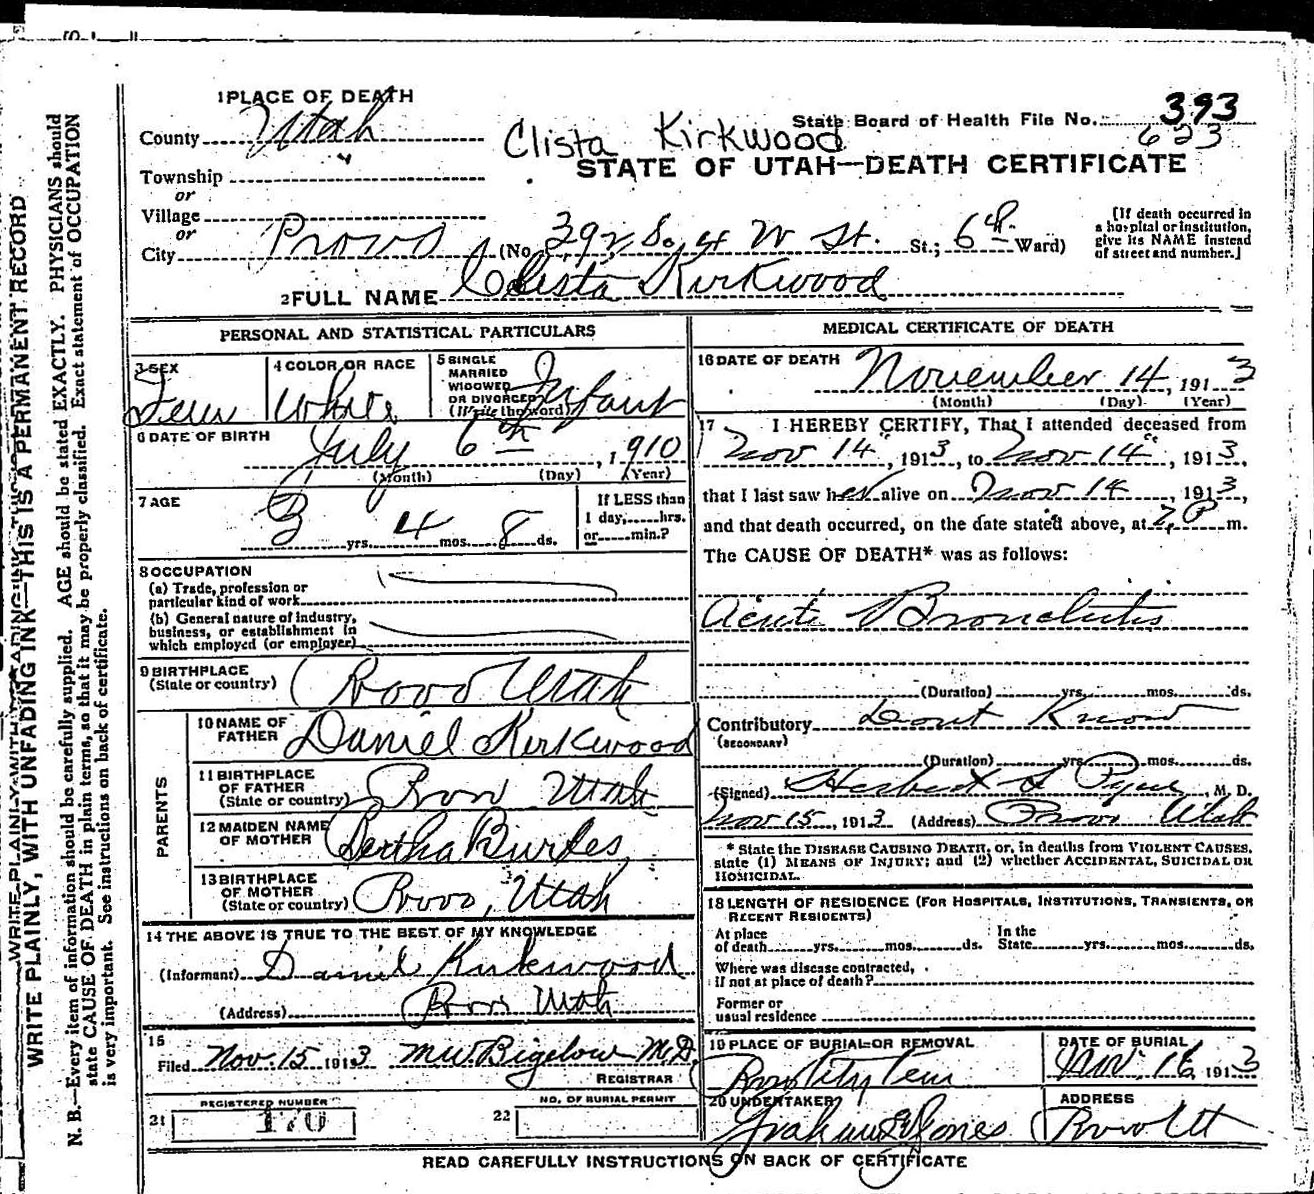 1 PLACE OF DEATH
County Utah
Clista Kirkwood
State Board of Health File No. 393
623
STATE OF UTAH—DEATH CERTIFICATE
Township
or
Village
or
City Provo (No. 392 So. 4 W St. St.; 6th Ward)
[If death occurred in
a hospital or institution,
give its NAME instead
of street and number.]
2 FULL NAME Clista Kirkwood
PERSONAL AND STATISTICAL PARTICULARS
3 SEX Fem
4 COLOR OR RACE White
5 SINGLE
MARRIED
WIDOWED
OR DIVORCED
(Write the word) Infant
6 DATE OF BIRTH July 6th, 1910
(Month) (Day) (Year)
7 AGE 3 yrs. 4 mos. 8 ds.
If LESS than
1 day, hrs.
or min.?
8 OCCUPATION
(a) Trade, profession or
particular kind of work
(b) General nature of industry,
business, or establishment in
which employed (or employer)
9 BIRTHPLACE
(State or country) Provo Utah
PARENTS
10 NAME OF
FATHER Daniel Kirkwood
11 BIRTHPLACE
OF FATHER
(State or country) Provo Utah
12 MAIDEN NAME
OF MOTHER Bertha
13 BIRTHPLACE
OF MOTHER
(State or country) Provo, Utah
14 THE ABOVE IS TRUE TO THE BEST OF MY KNOWLEDGE
(Informant) Daniel Kirkwood
(Address) Provo Utah
15
Filed Nov. 15 1913 M.W. Bigelow M.D.
REGISTRAR
21 REGISTERED NUMBER 170
22 NO. OF BURIAL PERMIT
MEDICAL CERTIFICATE OF DEATH
16 DATE OF DEATH November 14, 1913
(Month) (Day) (Year)
17 I HEREBY CERTIFY, That I attended deceased from
Nov 14", 1913, to Nov 14", 1913,
that I last saw her alive on Nov 14, 1913,
and that death occurred, on the date stated above, at 7 P m.
The CAUSE OF DEATH* was as follows:
Acute Bronchitis
(Duration) yrs. mos. ds.
Contributory Dont Know
(SECONDARY)
(Duration) yrs. mos. ds.
(Signed) Herbert S Pyne, M. D.
Nov 15, 1913 (Address) Provo Utah
* State the DISEASE CAUSING DEATH, or, in deaths from VIOLENT CAUSES,
state (1) MEANS OF INJURY; and (2) whether ACCIDENTAL, SUICIDAL OR
HOMICIDAL.
18 LENGTH OF RESIDENCE (FOR HOSPITALS, INSTITUTIONS, TRANSIENTS, OR
RECENT RESIDENTS)
At place
of death yrs. mos. ds.
In the
State yrs. mos. ds.
Where was disease contracted,
if not at place of death?
Former or
usual residence
19 PLACE OF BURIAL OR REMOVAL
Provo City Cem
DATE OF BURIAL
Nov. 16, 1913
20 UNDERTAKER
Graham & Jones
ADDRESS
Provo Ut
READ CAREFULLY INSTRUCTIONS ON BACK OF CERTIFICATE
WRITE PLAINLY, WITH UNFADING INK—THIS IS A PERMANENT RECORD
N. B.—Every item of information should be carefully supplied. AGE should be stated EXACTLY. PHYSICIANS should
state CAUSE OF DEATH in plain terms, so that it may be properly classified. Exact statement of OCCUPATION
is very important. See instructions on back of certificate.